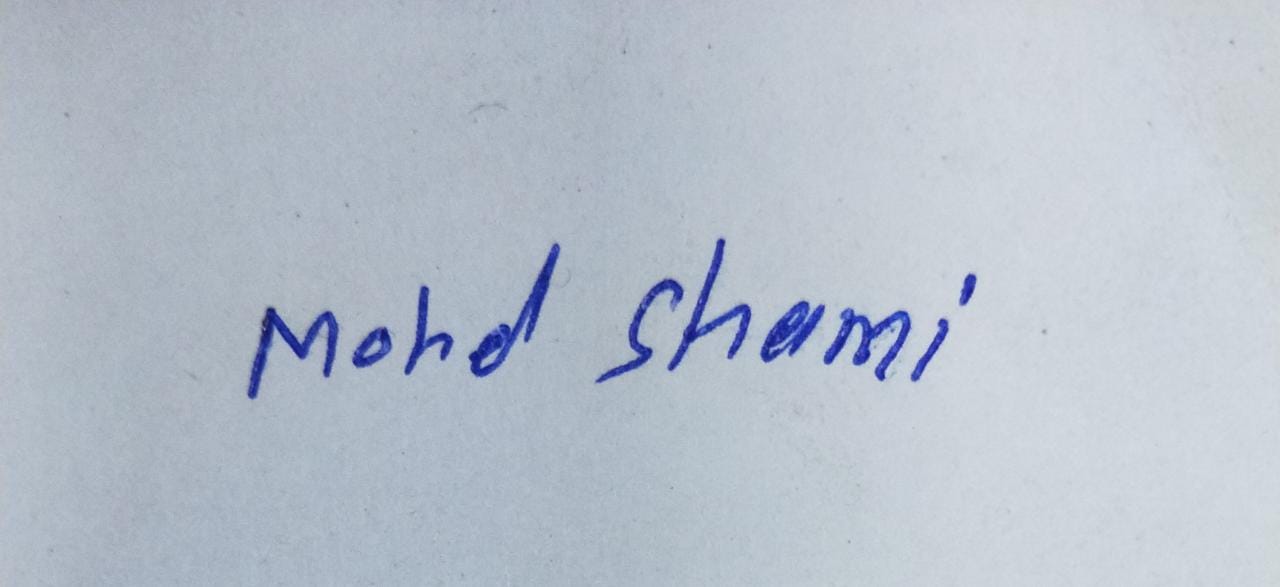 Mohd Shami